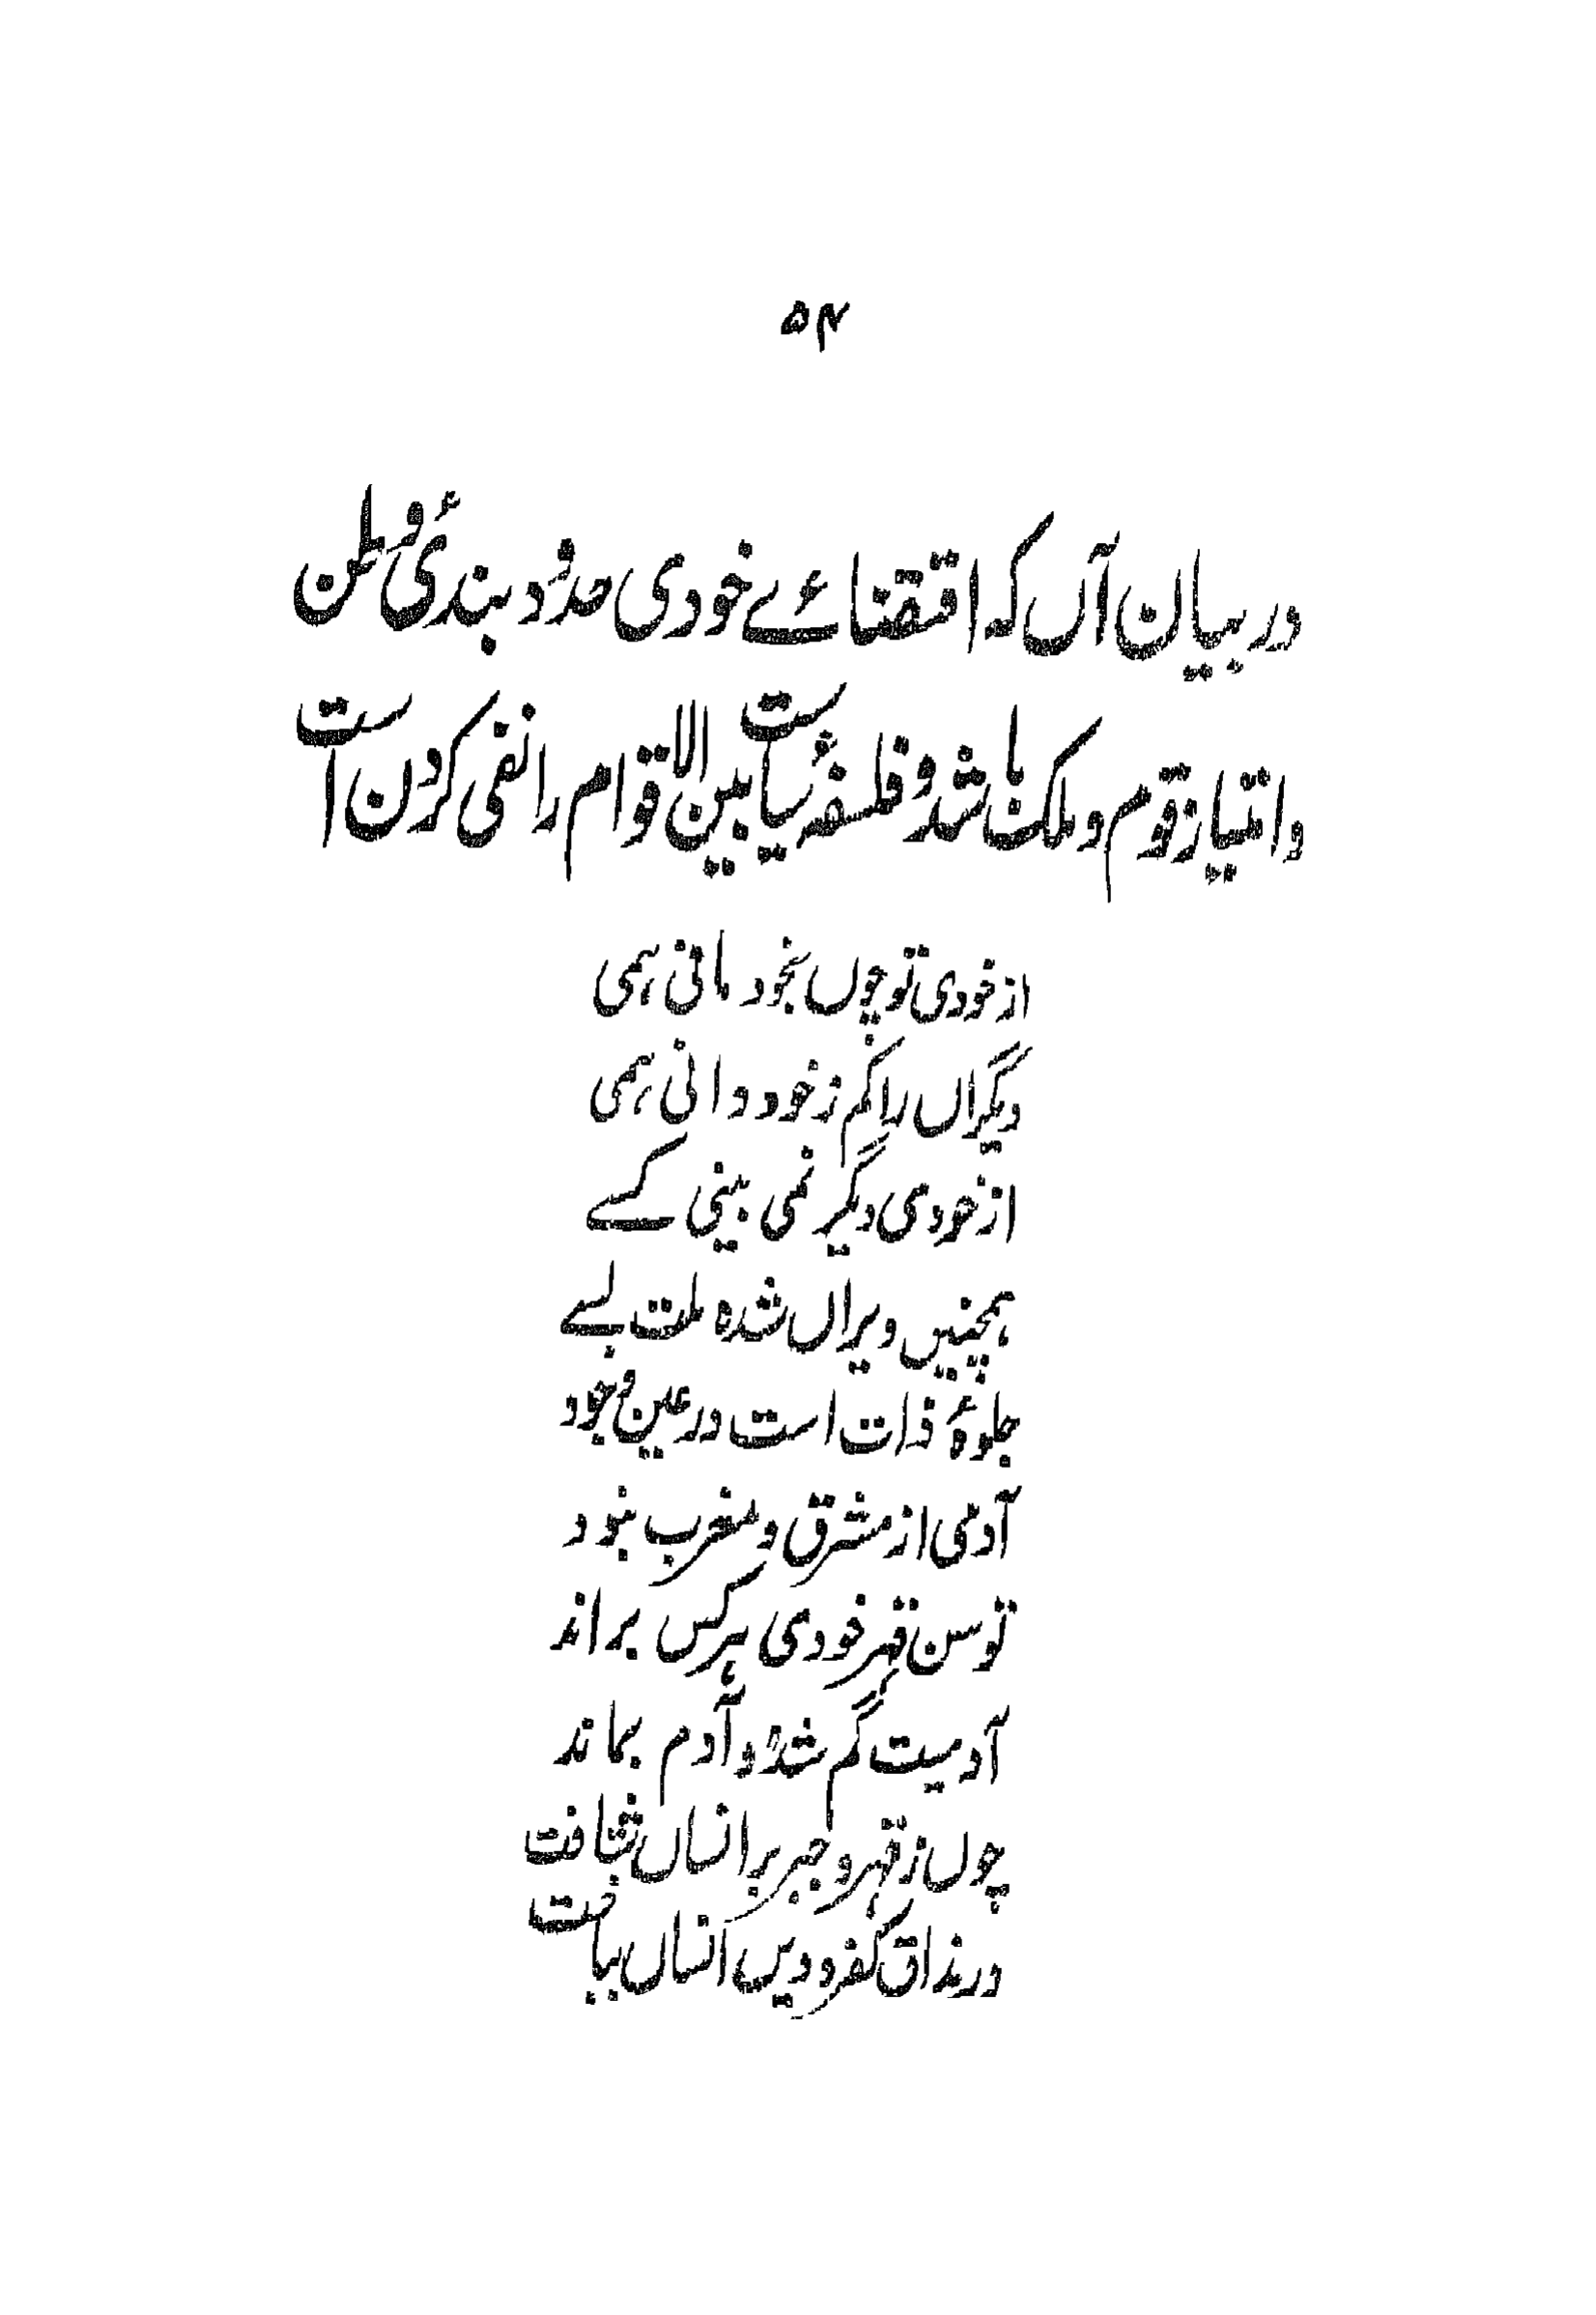 ۵۴
در بیان آں کہ اقتضائے خودی حدود بندئ وطن
و امتیاز قوم و ملک باشد و فلسفۂ سیاست بین الاقوام را نفی کردن است
از خودی تو چوں بخود مانی ہمی
دیگراں را کم ز خود دانی ہمی
از خودی دیگر نمی بینی کسے
ہمچنیں ویراں شدہ ملت بسے
جلوۂ ذات است در عین وجود
آدمی از مشرق و مغرب نبود
توسن قہر خودی ہر کس براند
آدمیت گم شد و آدم بماند
چوں ز قہر و جبر بر انساں شتافت
در مذاق کفر و دیں انساں